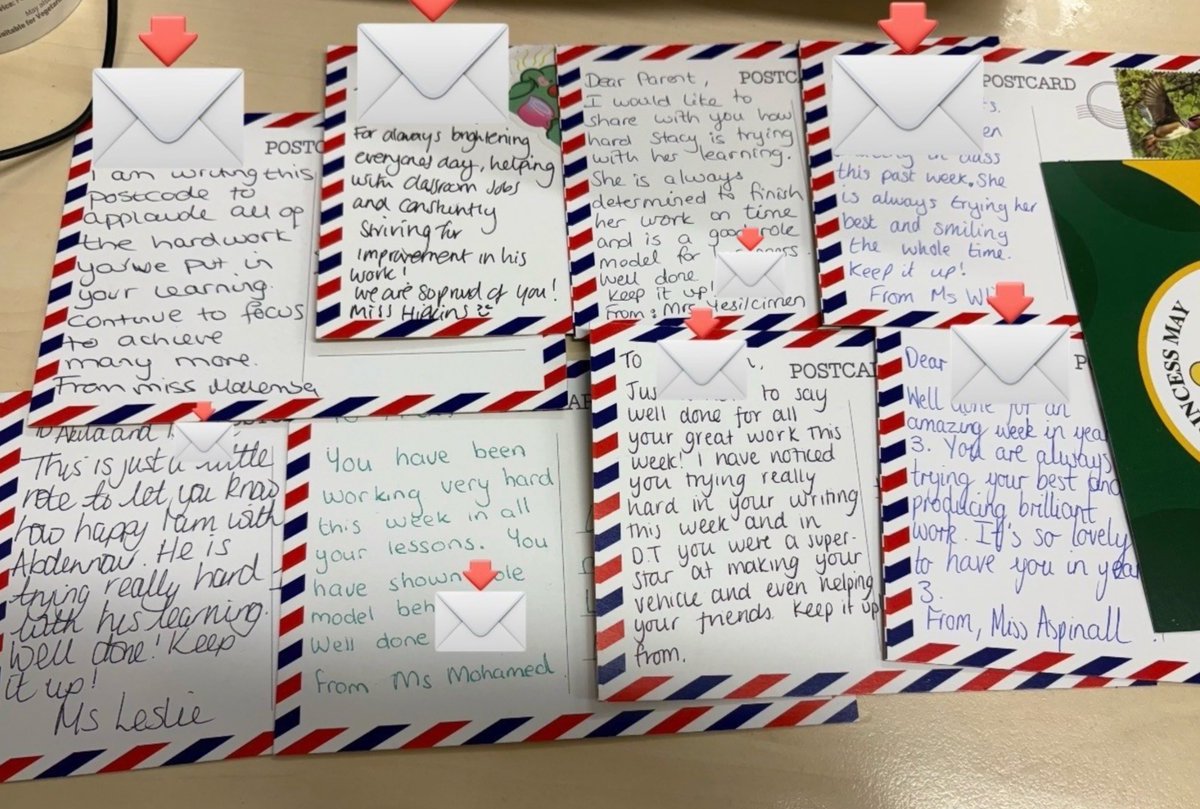 POSTC
I am writing this
postcode to
applaude all of
the hardwork
you've put in
your learning.
continue to focus
to achieve
many more.
From miss
For always brightening
everyones day, helping
with classroom jobs
and constantly
striving for
improvement in his
work!
we are so proud of you!
Miss Higkins
POSTC
Dear Parent,
I would like to
share with you how
hard Stacy is trying
with her learning.
She is always
determined to finish
her work on time
and is a good role
model for
Well done
Keep it up!
From: Mrs Yesilcimen
POSTCARD
in class
this past week. She
is always trying her
best and smiling
the whole time.
Keep it up!
From Ms
This is just a little
note to let you know
how happy I am with
He is
trying really hard
with his learning.
Well done! Keep
it up!
Ms Leslie
You have been
working very hard
this week in all
your lessons. You
have shown
model
Well done
from Ms Mohamed
POSTCA
To
to say
well done for all
your great work this
week! I have noticed
you trying really
hard in your writing
this week and in
D.T you were a super-
star at making your
vehicle and even helping
your friends. Keep it up!
from,
Dear
P
Well done for an
amazing week in year
3. You are always
trying your best and
producing brilliant
work. It's so lovely
to have you in year
3.
From, Miss Aspinall
NCESS MAY